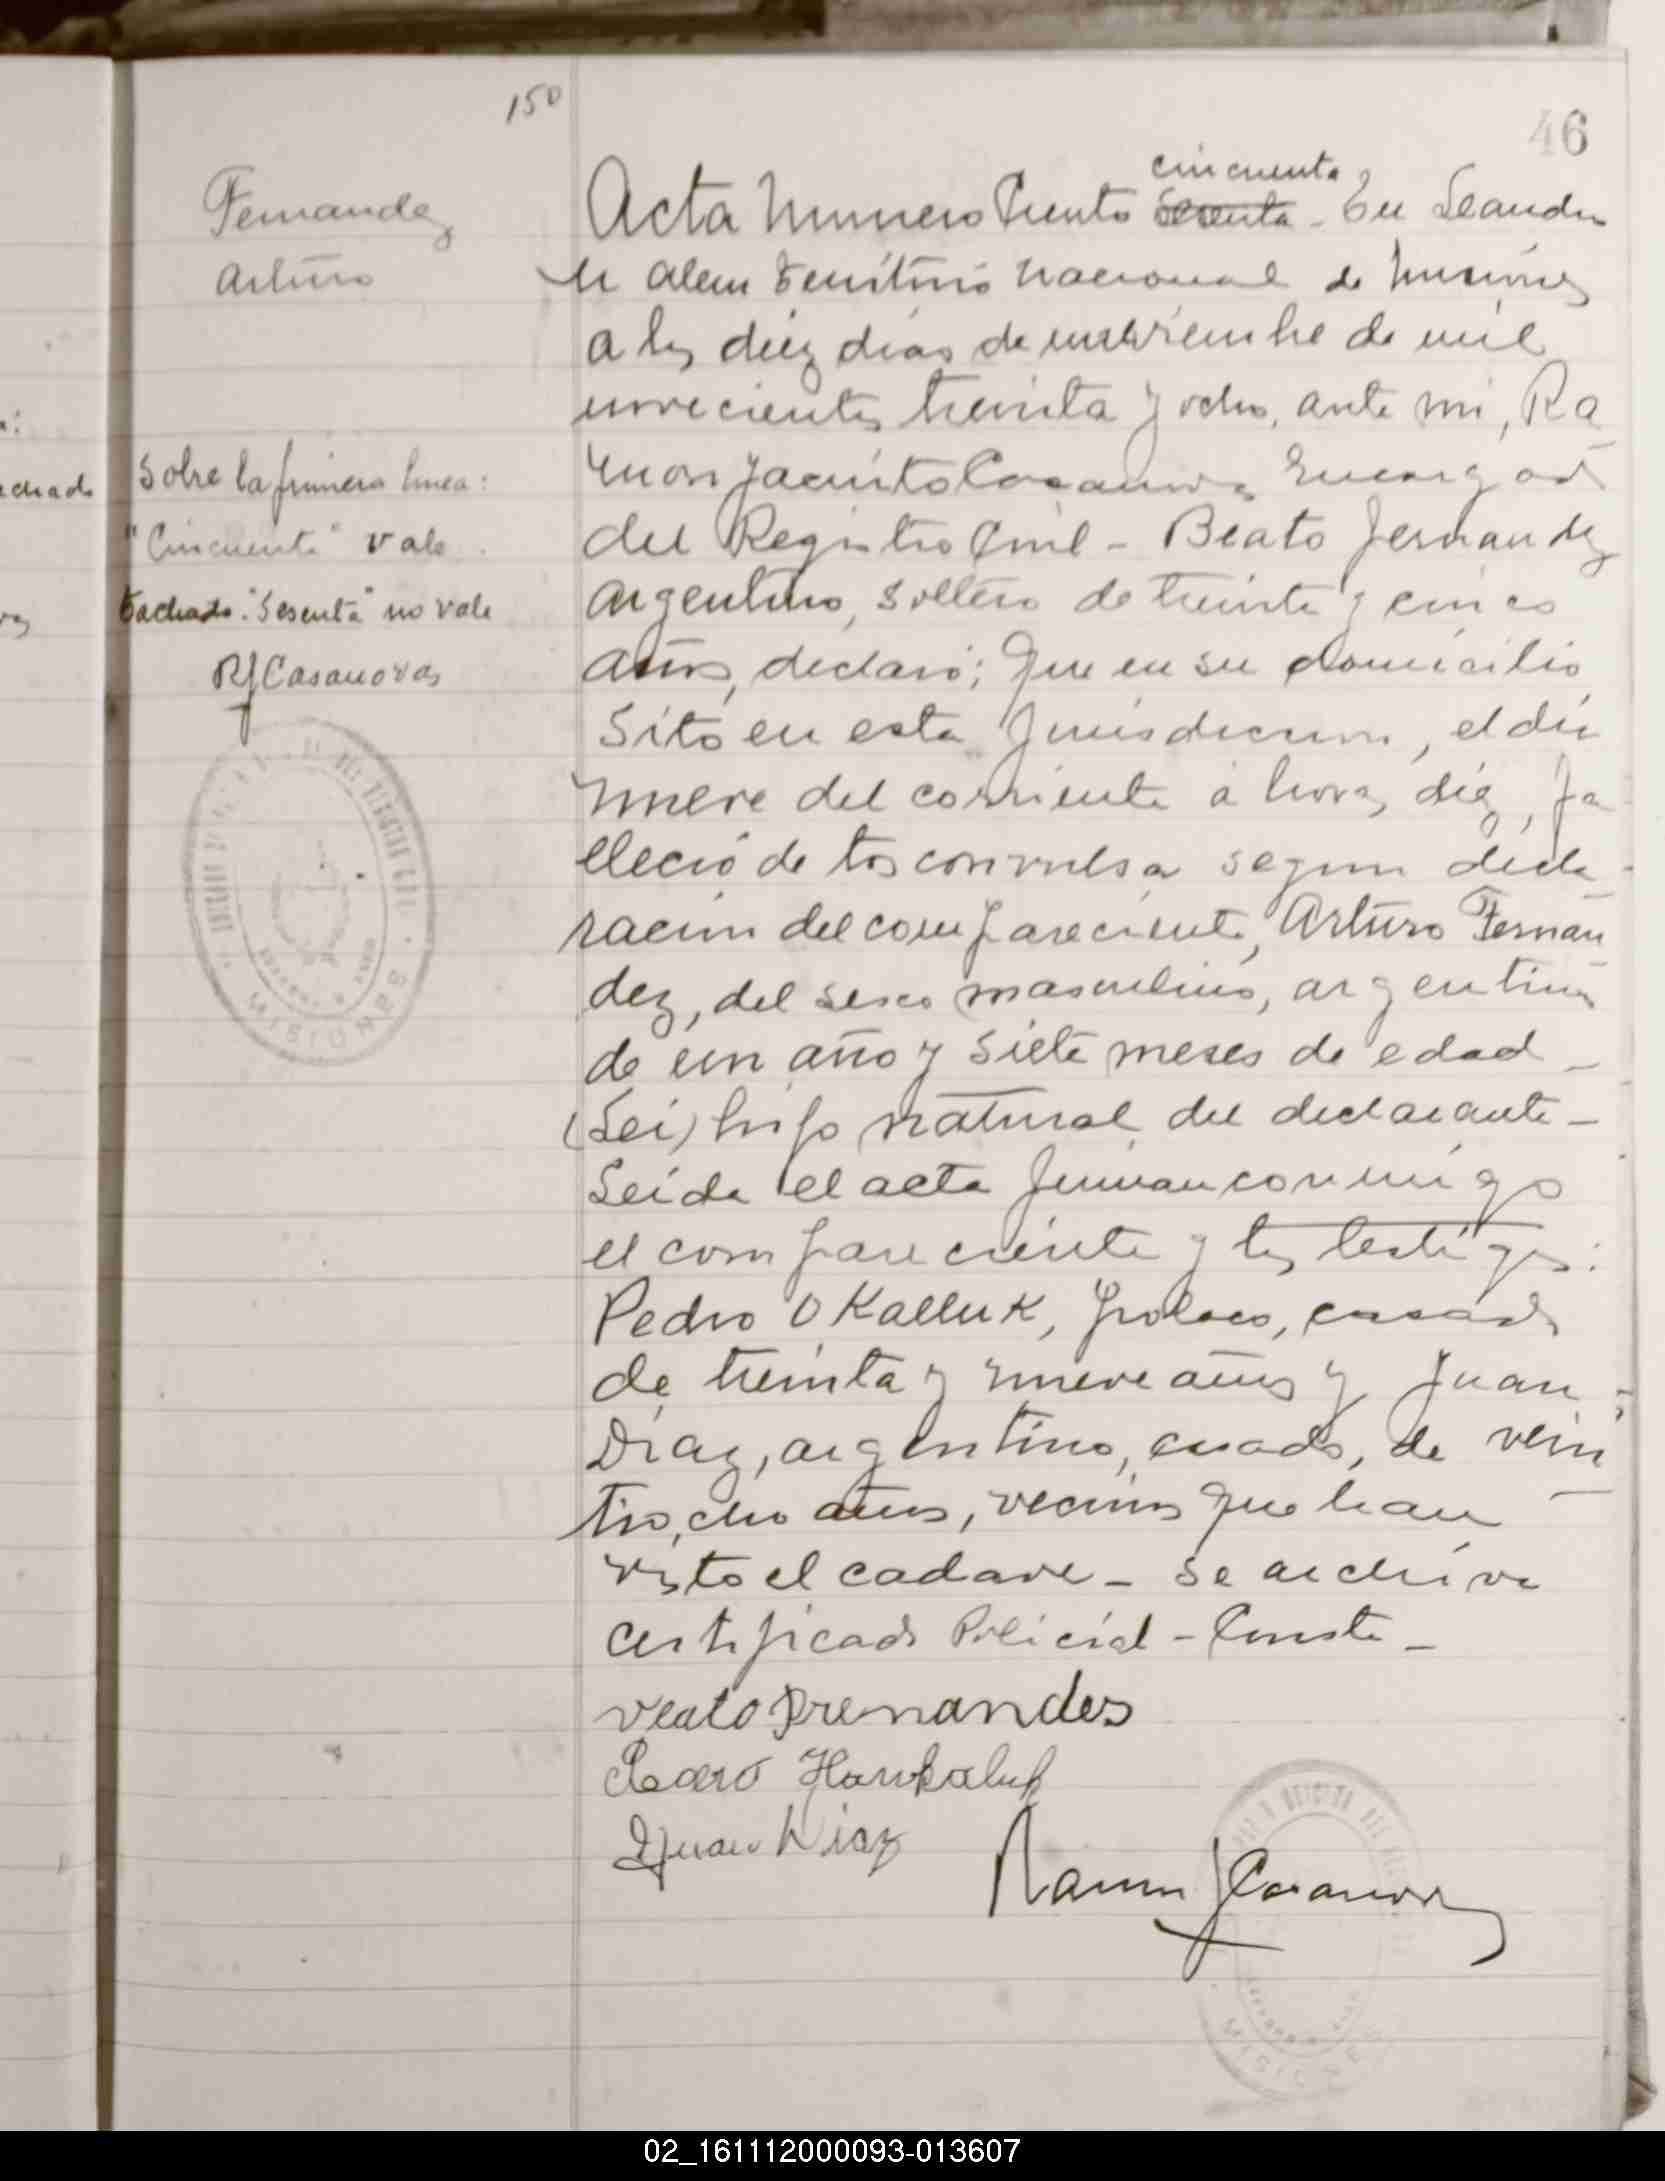 150
46
Fernandez
Arturo
cincuenta
Acta Numero Ciento Sesenta - En Leandro
N Alem Territorio Nacional de Misiones
a los diez dias de noviembre de mil
novecientos treinta y ocho, ante mi, Ra
mon Jacinto Casanovas Encargado
del Registro Civil - Beato Fernandez
argentino, soltero de treinta y cinco
años, declaró; Que en su domicilio
sito en esta Jurisdiccion, el dia
nueve del corriente a horas diez, fa
lleció de tos convulsa segun decla
racion del compareciente, Arturo Fernan
dez, del sexo masculino, argentino
de un año y siete meses de edad -
(Lei) hijo natural del declarante -
Leida el acta firman conmigo
el compareciente y los testigos:
Pedro OKalluK, polaco, casado
de treinta y nueve años y Juan
Diaz, argentino, casado, de vein
tiocho años, vecinos que han
visto el cadaver - Se archiva
certificado Policial - Conste -
Veato Frenandes
Pedro Hawkaluk
Juan Diaz
Ramon J Casanovas
Sobre la primera linea:
"Cincuenta" vale
Tachado: "Sesenta" no vale
RJCasanovas
MISIONES
MISIONES
02_161112000093-013607